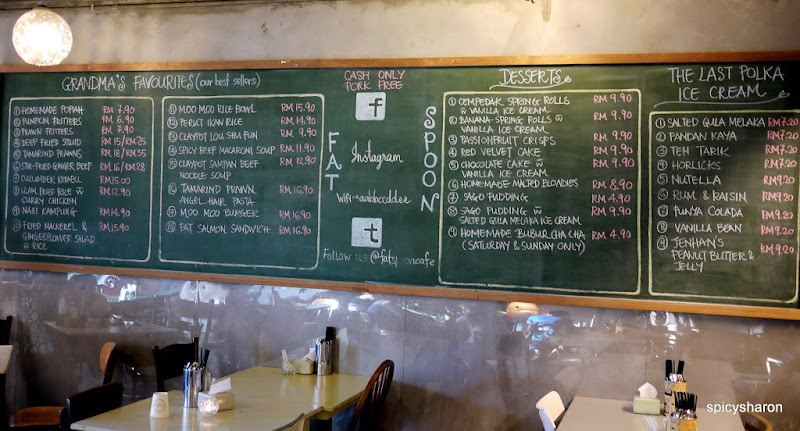 GRANDMA'S FAVOURITES (our best sellers)
① HOMEMADE POPIAH RM 7.90
② PUMPKIN FRITTERS RM 6.90
③ PRAWN FRITTERS RM 7.90
④ DEEP FRIED SQUID RM 15/RM25
⑤ TAMARIND PRAWNS RM 18/RM35
⑥ STIR-FRIED GINGER BEEF RM 16/RM28
⑦ CUCUMBER KERABU RM15.00
RICE W CURRY CHICKEN RM 12.90
⑨ NASI KAMPUNG RM 14.90
⑩ FRIED MACKEREL & GINGERFLOWER SALAD W RICE RM 15.90
⑪ MOO MOO RICE BOWL RM 15.90
⑫ PERUT IKAN RICE RM 14.90
⑬ CLAYPOT LOU SHU FUN RM 9.90
⑭ SPICY BEEF MACARONI SOUP RM 11.90
⑮ CLAYPOT SAMPAN BEEF NOODLE SOUP RM 12.90
⑯ TAMARIND PRAWN ANGEL HAIR PASTA RM 16.90
⑰ MOO MOO BURGER RM 16.90
⑱ FAT SALMON SANDWICH RM 16.90
CASH ONLY
PORK FREE
f
FAT
SPOON
Instagram
Wifi-aabbccddee
t
Follow us @fatspooncafe
DESSERTS
① CEMPEDAK SPRING ROLLS W VANILLA ICE CREAM RM 9.90
② BANANA SPRING ROLLS W VANILLA ICE CREAM RM 9.90
③ PASSIONFRUIT CRISPS RM 9.90
④ RED VELVET CAKE RM 9.90
⑤ CHOCOLATE CAKE W VANILLA ICE CREAM RM 9.90
⑥ HOMEMADE MALTED BLONDIES RM 8.90
⑦ SAGO PUDDING RM 4.90
⑧ SAGO PUDDING W SALTED GULA MELAKA ICE CREAM RM 9.90
⑨ HOMEMADE BUBUR CHA CHA (SATURDAY & SUNDAY ONLY) RM 4.90
THE LAST POLKA
ICE CREAM
① SALTED GULA MELAKA RM7.20
② PANDAN KAYA RM7.20
③ TEH TARIK RM7.20
④ HORLICKS RM7.20
⑤ NUTELLA RM9.20
⑥ RUM & RAISIN RM9.20
⑦ PUNYA COLADA RM9.20
⑧ VANILLA BEAN RM9.20
⑨ JENHAN'S PEANUT BUTTER & JELLY RM9.20
spicysharon